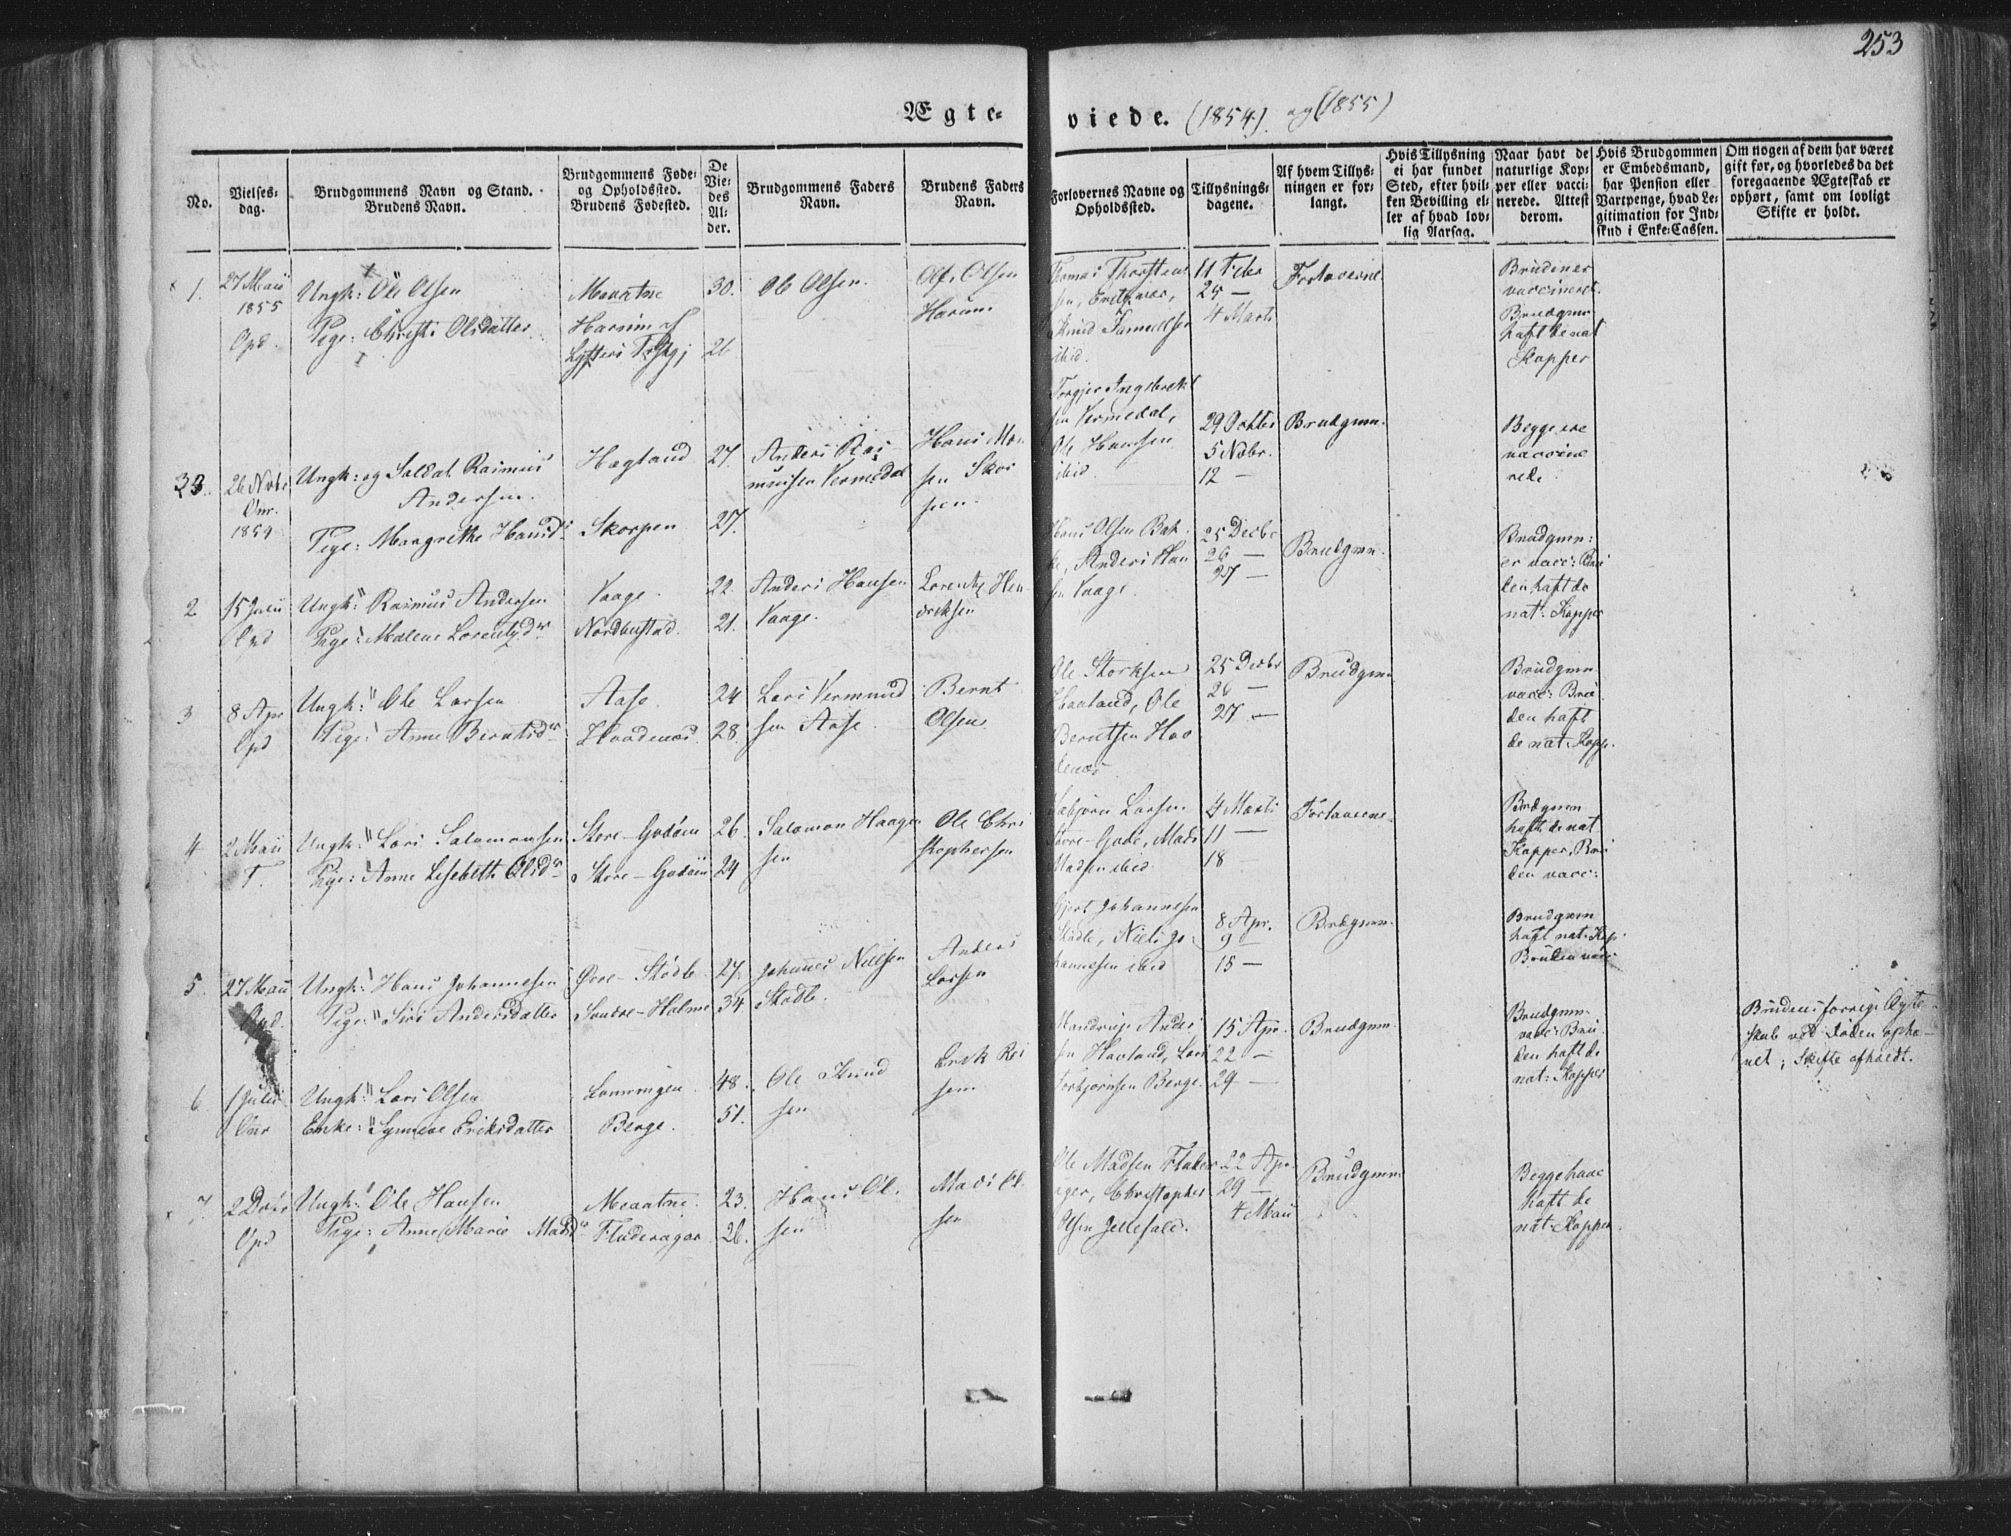 253
Ægte- viede. (1854) og (1855)
No.
Vielses-
dag.
Brudgommens Navn og Stand.
Brudens Navn.
Brudgommens Føde-
og Opholdssted.
Brudens Fødested.
De
Vie-
des
Al-
der.
Brudgommens Faders
Navn.
Brudens Faders
Navn.
Forlovernes Navne og
Opholdssted.
Tillysnings-
dagene.
Af hvem Tillys-
ningen er for-
langt.
Hvis Tillysning
ei har fundet
Sted, efter hvil-
ken Bevilling el-
ler af hvad lov-
lig Aarsag.
Naar havt de
naturlige Kop-
per eller vacci-
nerede. Attest
derom.
Hvis Brudgommen
er Embedsmand,
har Pension eller
Vartpenge, hvad Le-
gitimation for Ind-
skud i Enke-Cassen.
Om nogen af dem har været
gift før, og hvorledes da det
foregaaende Ægteskab er
ophørt, samt om lovligt
Skifte er holdt.
1.
27 Maii
1855
Opd.
Ungk: Ole Olsen
Pige: Christi Olsdatter
Meaatne
30.
26
Ole Olsen
Ole Olsen
Harum
Knud Samuelsen
ibid.
11 Febr
25 —
4 Marts
Forloverne
Bruden er
vaccineret.
Brudgmn
haft de nat
Kopper
33.
26 Novb.
1854
Ungk: og Soldat Rasmus
Andersen.
Pige: Margrethe Hansd.
Hagland
Skorpen
27.
27.
Anders Ras-
musen Vermedal
Hans Mon
sen Skor
pen
Torgjer Ingebrekt
sen Vermedal,
Ole Hansen
ibid.
29 Octbr
5 Nobr.
12 —
Brudgmn.
Begge ere
vaccine
rede
2
15 Julii
Opd
Ungk: Rasmus Andersen
Pige: Malene Lorentzdr
Vaage.
Nordbustad.
22.
21.
Anders Hansen
Vaage.
Lorentz Hen
driksen
Hans Olsen Bak
ke, Anders Han
sen Vaage.
25 Decbr
26 —
27 —
Brudgmn.
Brudgmn:
er vacc: Bru
den haft de
nat: Kopper
3
8 Apr
Opd
Ungk: Ole Larsen
Pige: Anne Berntsdr
Aase.
24
28.
Lars Vermund
sen Aase.
Bernt
Olsen
Ole Storksen
Haaland, Ole
Berntsen Hao
denæs
25 Decbr
26 —
27 —
Brudgmn
Brudgmn
vacc: Bru
den haft
de nat: Kopp.
4
2 Maii
T.
Ungk: Lars Salomonsen
Pige: Anne Lisebeth Olsdr
Store-Godøen
Store-Godøen
26.
24
Salomon Haagen
sen
Ole Chri
stophersen
Larsen
Store-Gode, Mads
Madsen ibid
4 Marts
11 —
18
Forloverne
Brudgmn
haft de nat
Kopper, Bru
den vacc:
5.
27 Maii
Opd.
Ungk: Hans Johannesen
Pige: Siri Andersdatter
Øvre-Stødle
Søndre-Holme
27.
34
Johannes Nielsen
Stødle.
Anders
Larsen
Johannesen
Stødle, Niels Jo-
hannesen ibid
8 Apr.
9 —
15 —
Brudgmn.
Brudgmn
haft nat: Kop.
Bruden vacc
6
1 Julii
Ungk: Lars Olsen
Enke: Synneve Eriksdatter
Lønningen.
Berge.
48.
51.
Ole Knud
sen
Erik Ras
sen
Mandrup Anders
sen Havland, Lars
Torbjørnsen Berge.
15 Apr.
22 —
29 —
Brudgmn
Brudgmn
vacc: Bru
den haft de
nat: Kopper
Brudens forrige Ægte-
skab ved Døden ophæ-
vet; Skifte afholdt.
7
Opd
Ungk: Ole Hansen
Pige: Anne Marie Madsdr
Meaatne.
Fluderager
23.
26.
Hans Ol.
sen
Mads Ol
sen
Ole Madsen Fluder
ager, Christopher
Olsen Jellesald.
22 Apr.
29 —
4 Maii
Brudgmn
Begge have
haft de
nat: Kopper